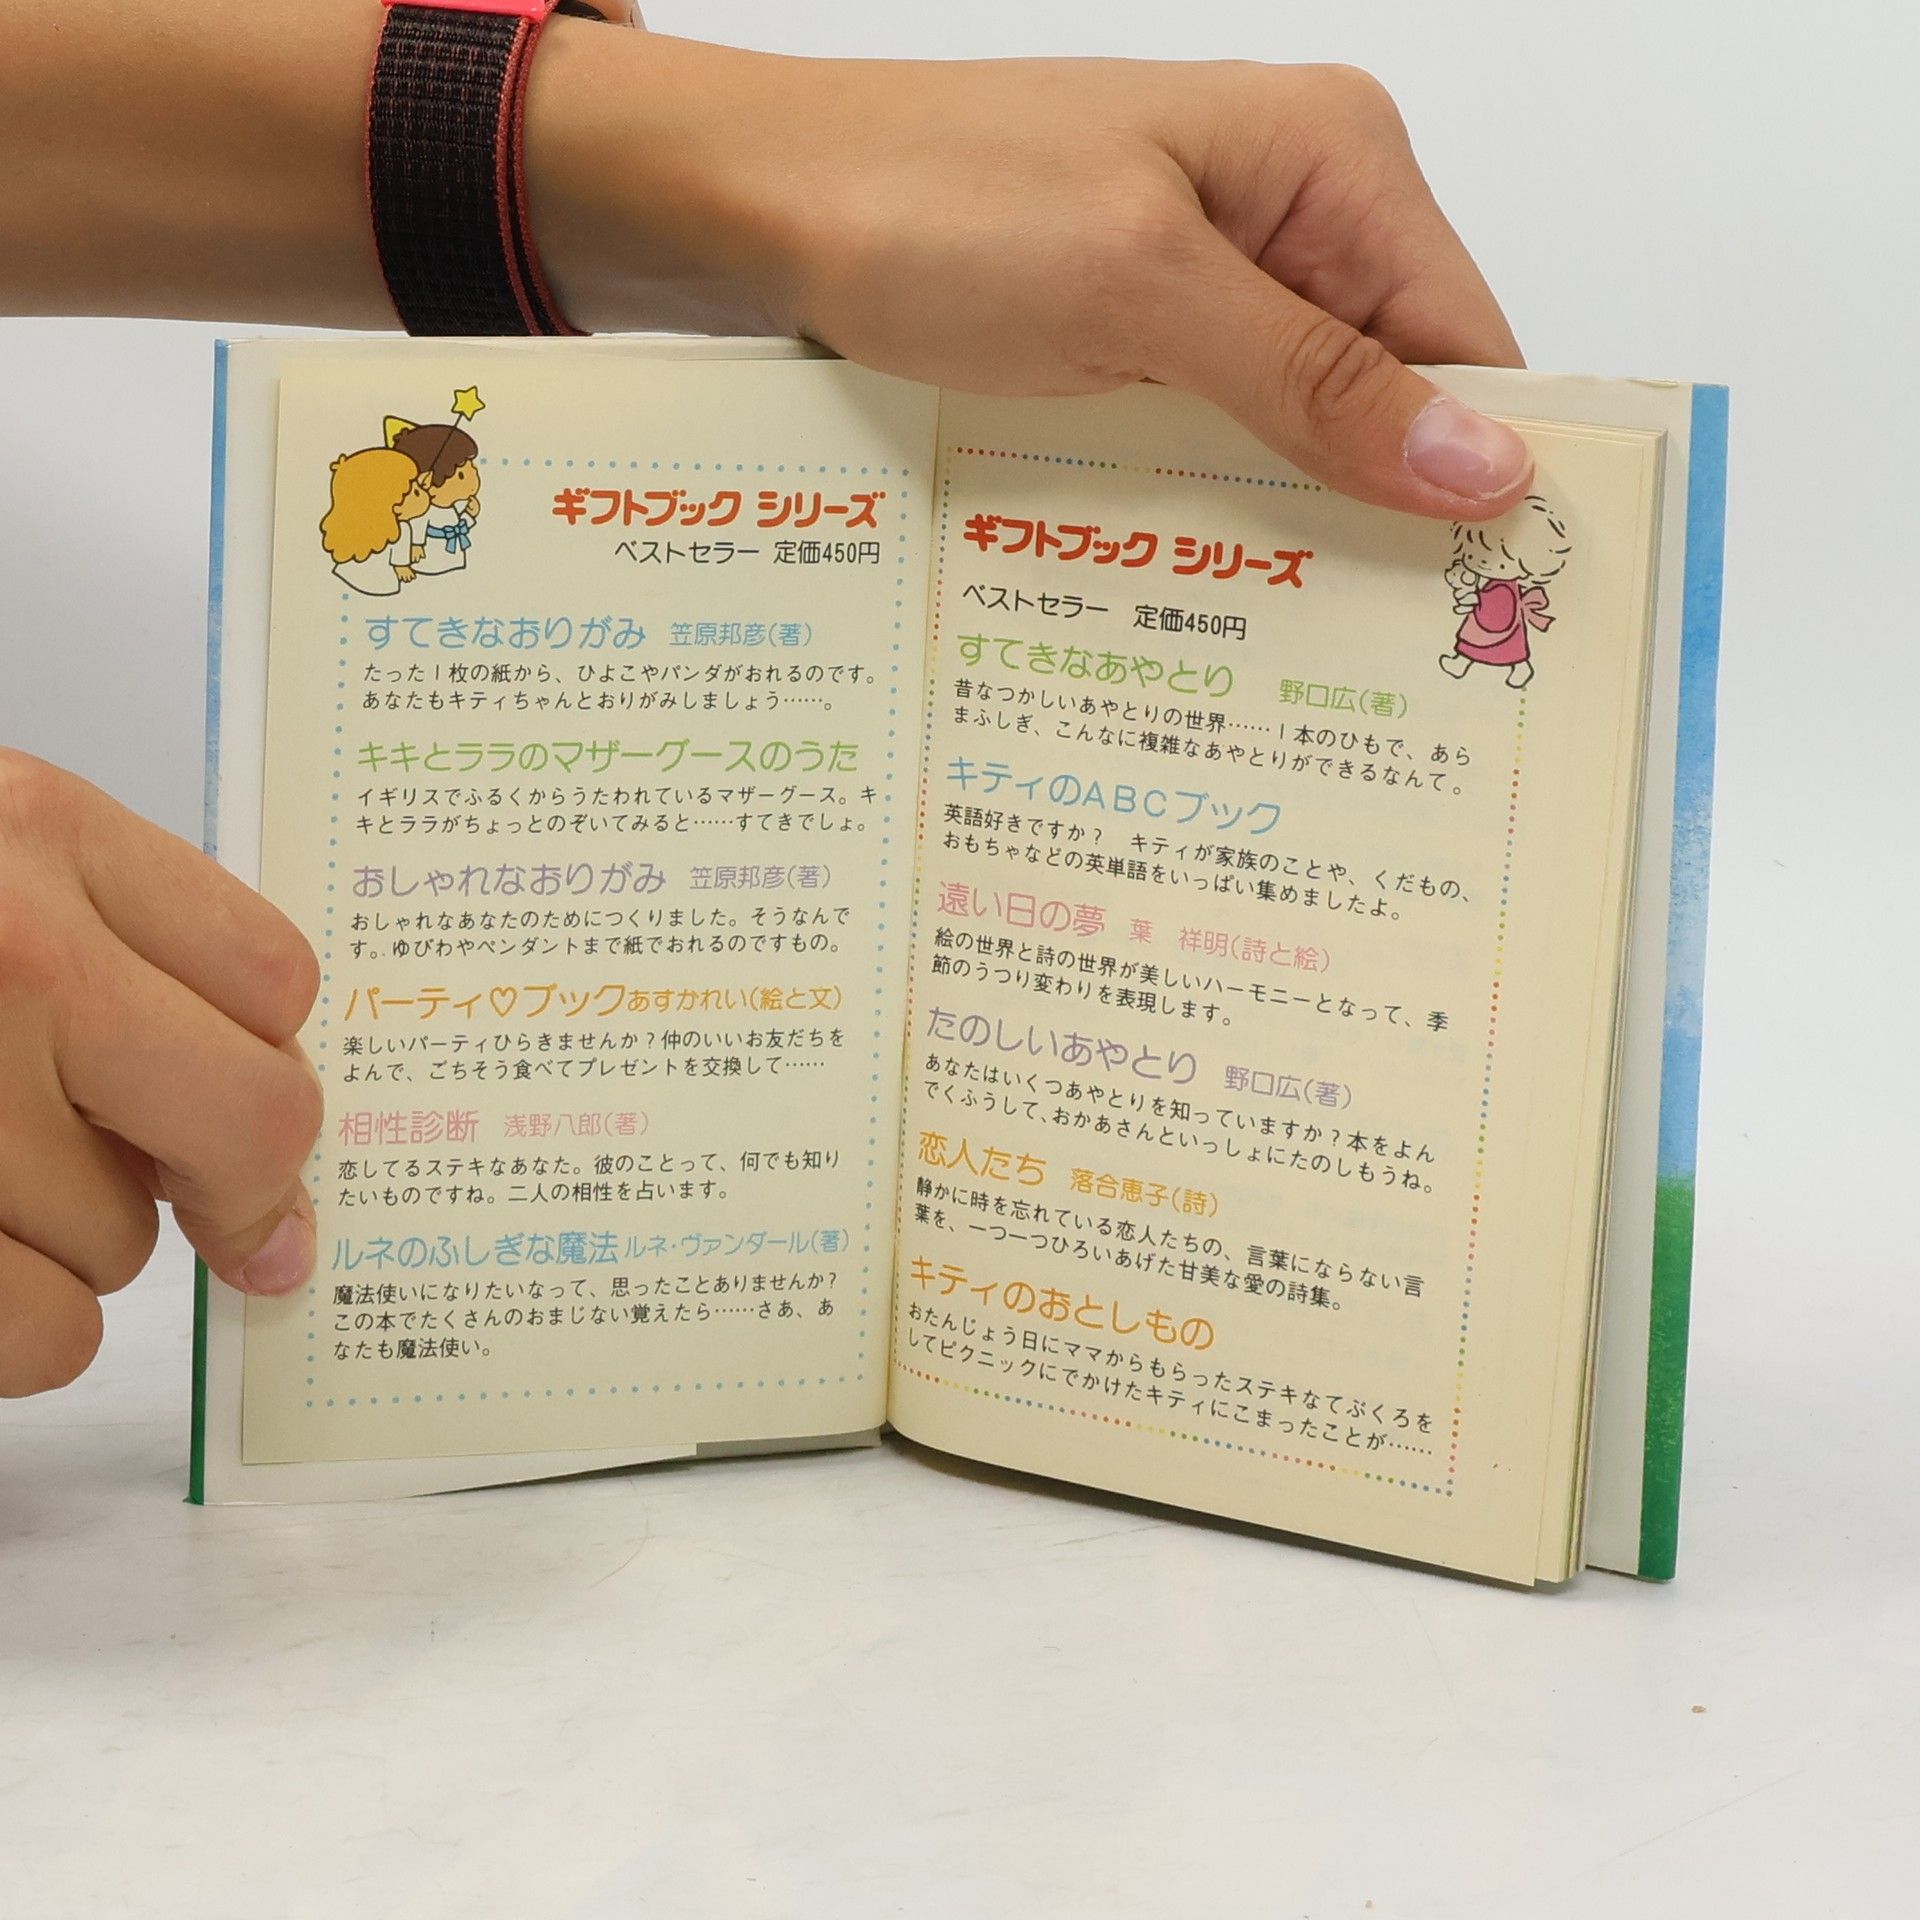 ギフトブック シリーズ
ベストセラー 定価450円
すてきなおりがみ 笠原邦彦(著)
たった1枚の紙から、ひよこやパンダがおれるのです。
あなたもキティちゃんとおりがみしましょう……。
キキとララのマザーグースのうた
イギリスでふるくからうたわれているマザーグース。キ
キとララがちょっとのぞいてみると……すてきでしょ。
おしゃれなおりがみ 笠原邦彦(著)
おしゃれなあなたのためにつくりました。そうなんで
す。ゆびわやペンダントまで紙でおれるのですもの。
パーティ♡ブック あすかれい(絵と文)
楽しいパーティひらきませんか？仲のいいお友だちを
よんで、ごちそう食べてプレゼントを交換して……
相性診断 浅野八郎(著)
恋してるステキなあなた。彼のことって、何でも知り
たいものですね。二人の相性を占います。
ルネのふしぎな魔法 ルネ・ヴァンダール(著)
魔法使いになりたいなって、思ったことありませんか？
この本でたくさんのおまじない覚えたら……さあ、あ
なたも魔法使い。
ギフトブック シリーズ
ベストセラー 定価450円
すてきなあやとり 野口広(著)
昔なつかしいあやとりの世界……1本のひもで、あら
まふしぎ、こんなに複雑なあやとりができるなんて。
キティのABCブック
英語好きですか？ キティが家族のことや、くだもの、
おもちゃなどの英単語をいっぱい集めましたよ。
遠い日の夢 葉 祥明(詩と絵)
絵の世界と詩の世界が美しいハーモニーとなって、季
節のうつり変わりを表現します。
たのしいあやとり 野口広(著)
あなたはいくつあやとりを知っていますか？本をよん
でくふうして、おかあさんといっしょにたのしもうね。
恋人たち 落合恵子(詩)
静かに時を忘れている恋人たちの、言葉にならない言
葉を、一つ一つひろいあげた甘美な愛の詩集。
キティのおとしもの
おたんじょう日にママからもらったステキなてぶくろを
してピクニックにでかけたキティにこまったことが……